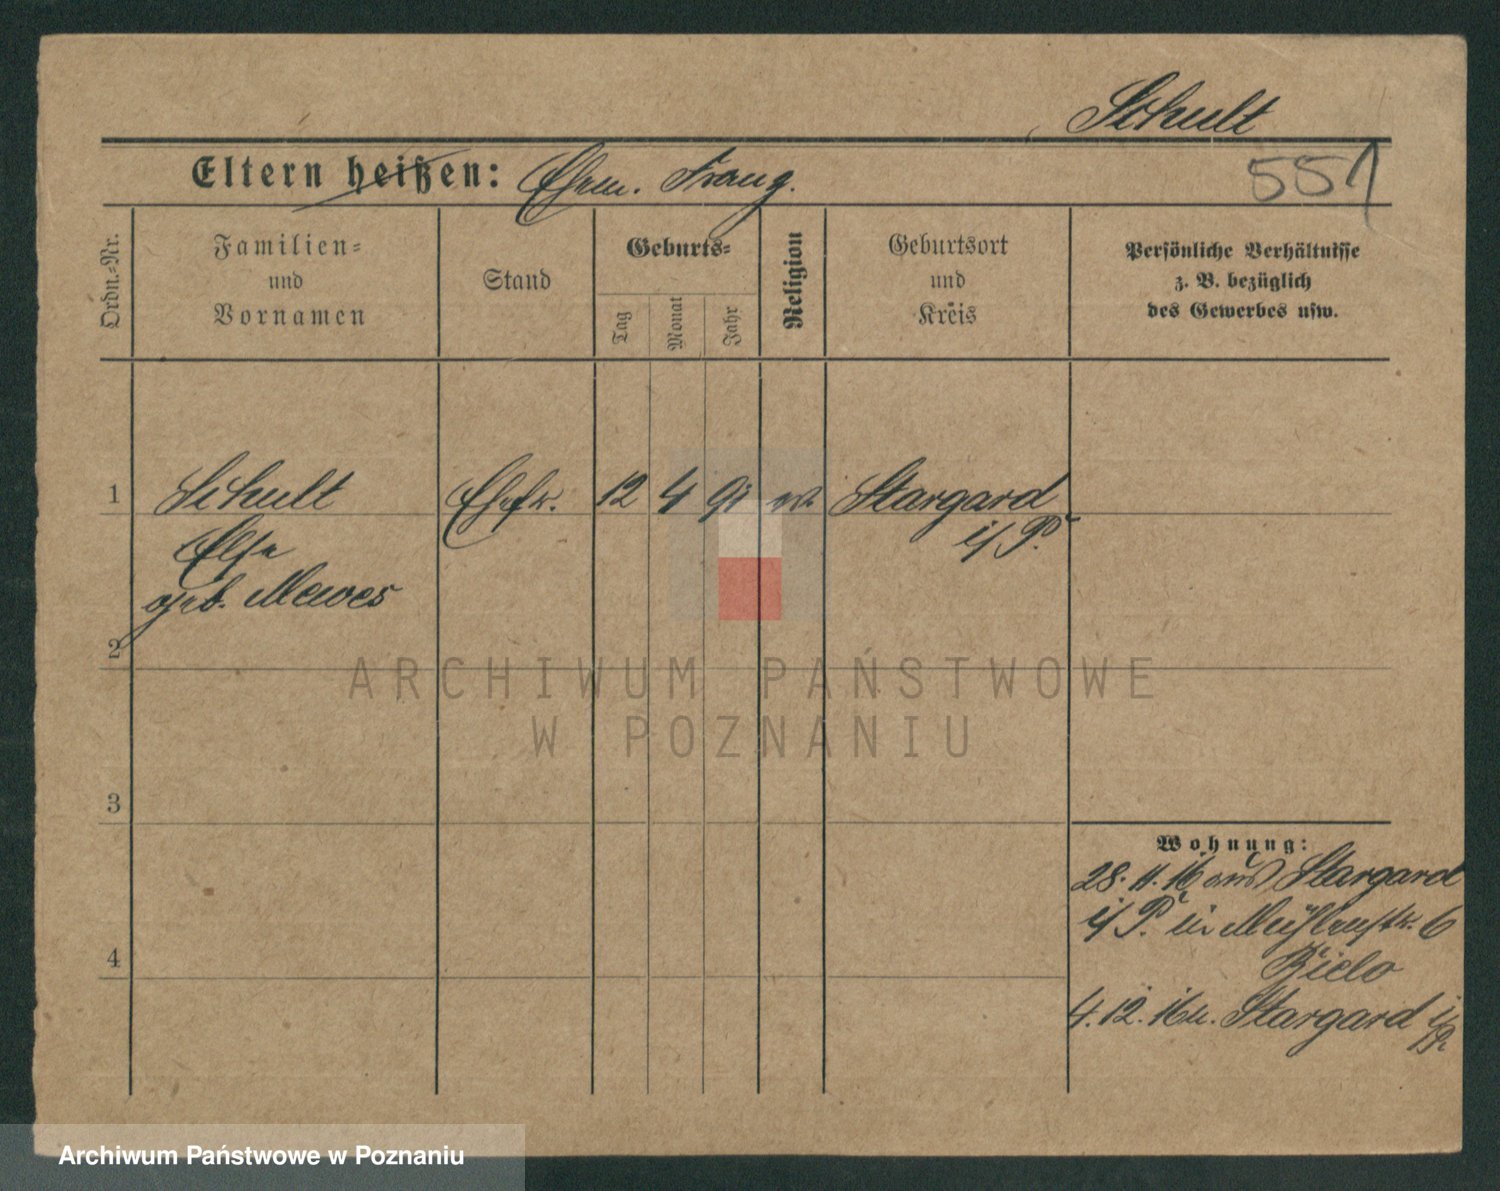 Schult
Eltern heißen: Ehem. Franz.
551
Ordn.-Nr.
Familien-
und
Vornamen
Stand
Geburts-
Tag
Monat
Jahr
Religion
Geburtsort
und
Kreis
Persönliche Verhältnisse
z. B. bezüglich
des Gewerbes usw.
1 Schult Ehefr. 12 4 91 ev. Stargard
i/P.
Else
geb. Mewes
2
3
4
Wohnung:
28. 11. 16 aus Stargard
i/P. in Mühlenstr. 6
4. 12. 16 n. Stargard i/P.
ARCHIWUM PAŃSTWOWE
W POZNANIU
Archiwum Państwowe w Poznaniu